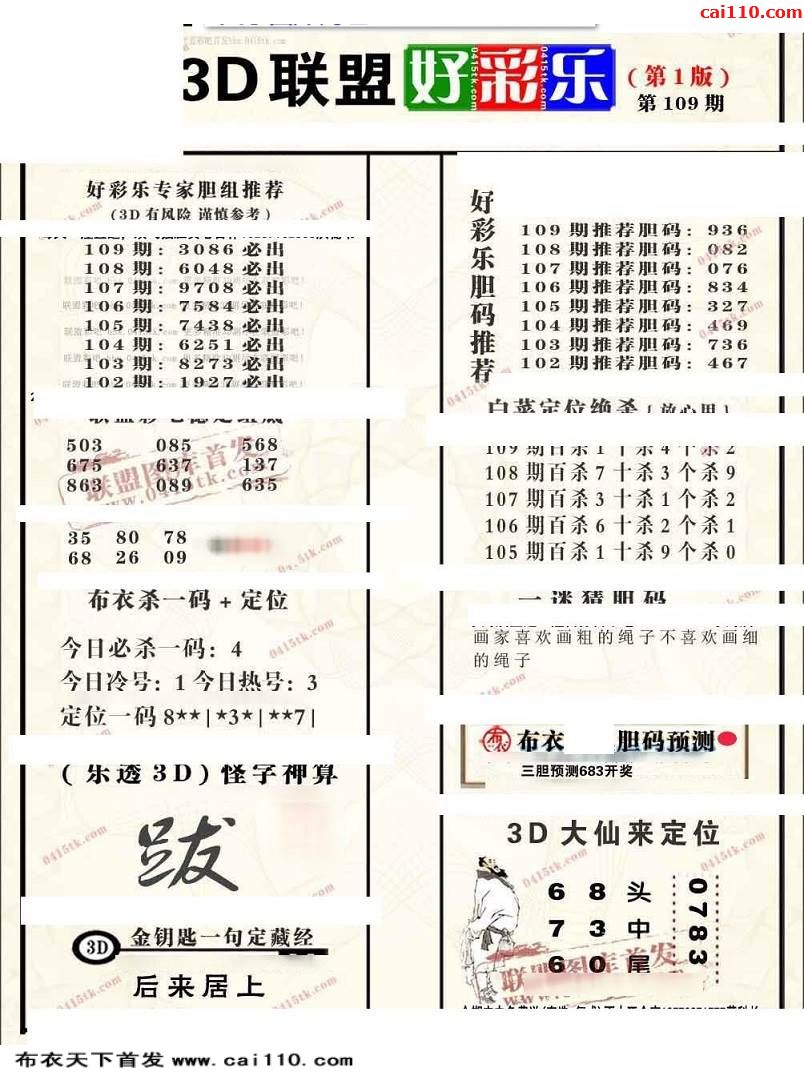 cai110.com
3D联盟好彩乐
(第1版)
第109期
好彩乐专家胆组推荐
(3D有风险 谨慎参考)
109期:3086必出
108期:6048必出
107期:9708必出
106期:7584必出
105期:7438必出
104期:6251必出
103期:8273必出
102期:1927必出
503 085 568
675 637 137
863 089 635
35 80 78
68 26 09
布衣杀一码+定位
今日必杀一码:4
今日冷号:1 今日热号:3
定位一码 8**|*3*|**7|
(乐透3D)怪字神算
跋
3D 金钥匙一句定藏经
后来居上
好彩乐胆码推荐
109期推荐胆码:936
108期推荐胆码:082
107期推荐胆码:076
106期推荐胆码:834
105期推荐胆码:327
104期推荐胆码:469
103期推荐胆码:736
102期推荐胆码:467
白菜定位绝杀(放心用)
109期百杀1十杀4个杀2
108期百杀7十杀3个杀9
107期百杀3十杀1个杀2
106期百杀6十杀2个杀1
105期百杀1十杀9个杀0
一迷猜胆码
画家喜欢画粗的绳子不喜欢画细
的绳子
布衣 胆码预测
三胆预测683开奖
3D大仙来定位
6 8 头
7 3 中
6 0 尾
0783
联盟图库首发
www.0415tk.com
布衣天下首发 www.cai110.com